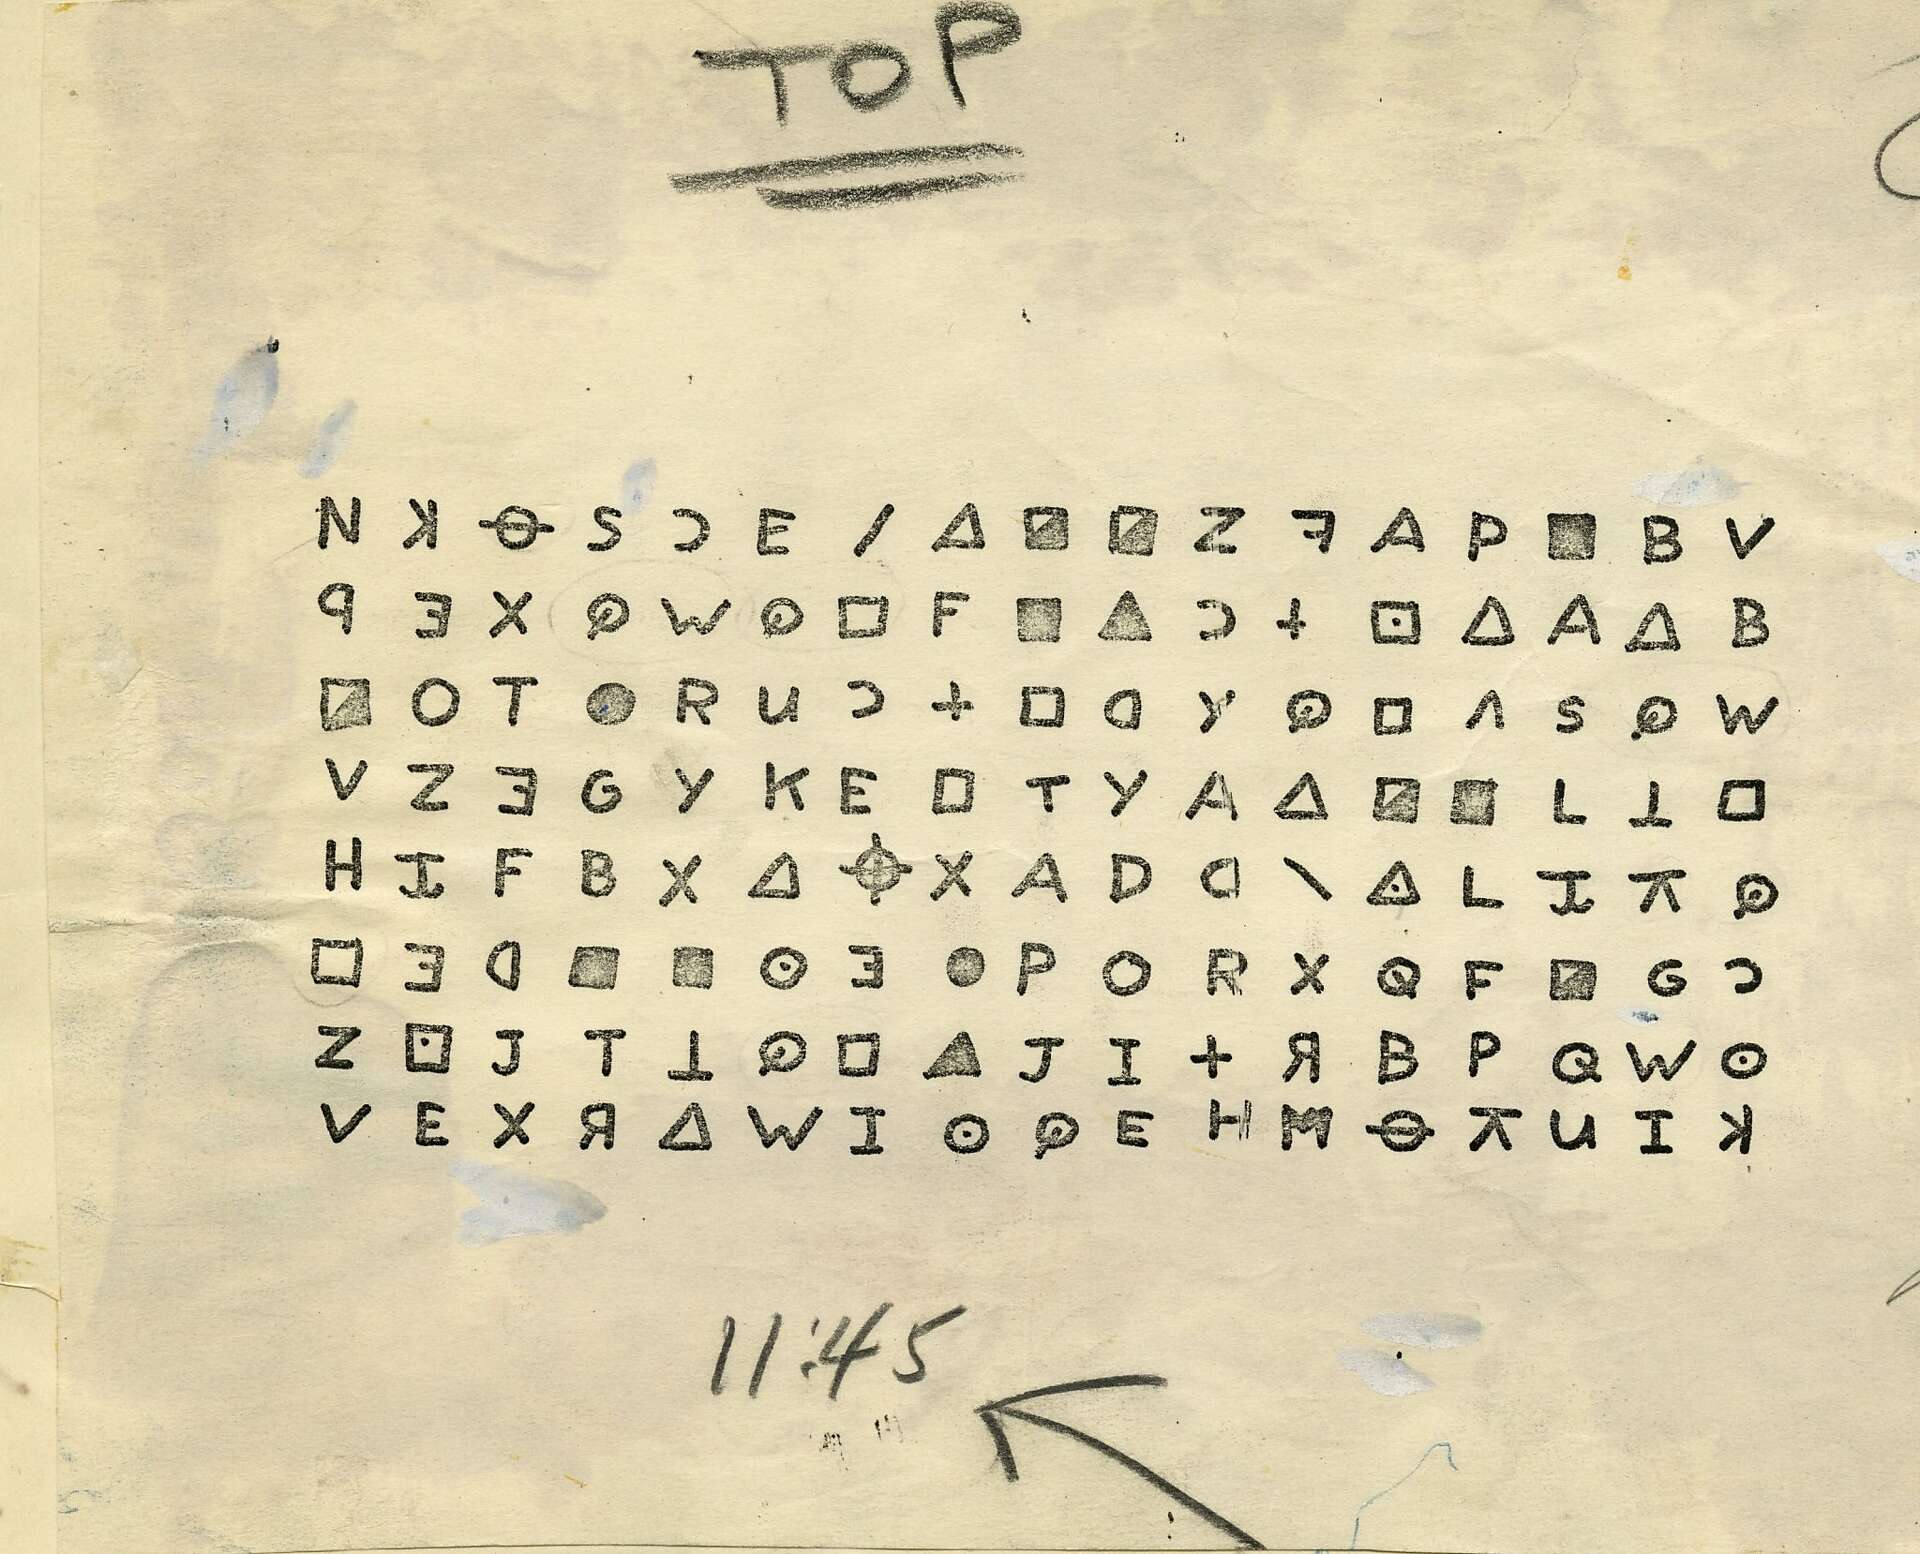 TOP
N ꓘ ⊖ S Ɔ E / △ ◪ ◪ Z ꟻ A P ■ B V
ꟼ Ǝ X ᑫ W ᑫ □ F ■ ▲ Ɔ + ⊡ △ A △ B
◪ O T ● R U Ɔ + □ ᗡ Y ᑫ □ Λ S ᑫ W
V Z Ǝ G Y K E □ T Y A △ ◪ ■ L ⊥ □
H I F B X △ ⌖ X A D ᗡ \ ◬ L I ⊼ ᑫ
□ Ǝ ᗡ ■ ■ ⊙ Ǝ ● P O R X Q F ◪ G Ɔ
Z ⊡ J T ⊥ ᑫ □ ▲ J I + Я B P Q W ⊙
V E X Я △ W I ⊙ ᑫ E H M ⊖ ⊼ U I ꓘ
11:45